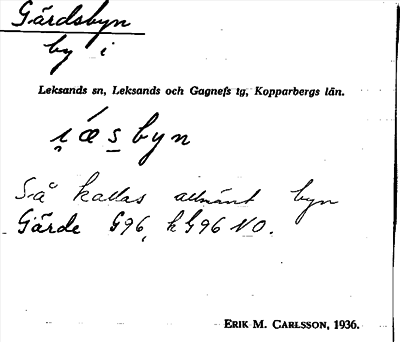 Gärdsbyn
by i
Leksands sn, Leksands och Gagnefs tg, Kopparbergs län.
i̯ǽs̲byn
Så kallas allmänt byn
Gärde G96, h G96 NO.
ERIK M. CARLSSON, 1936.